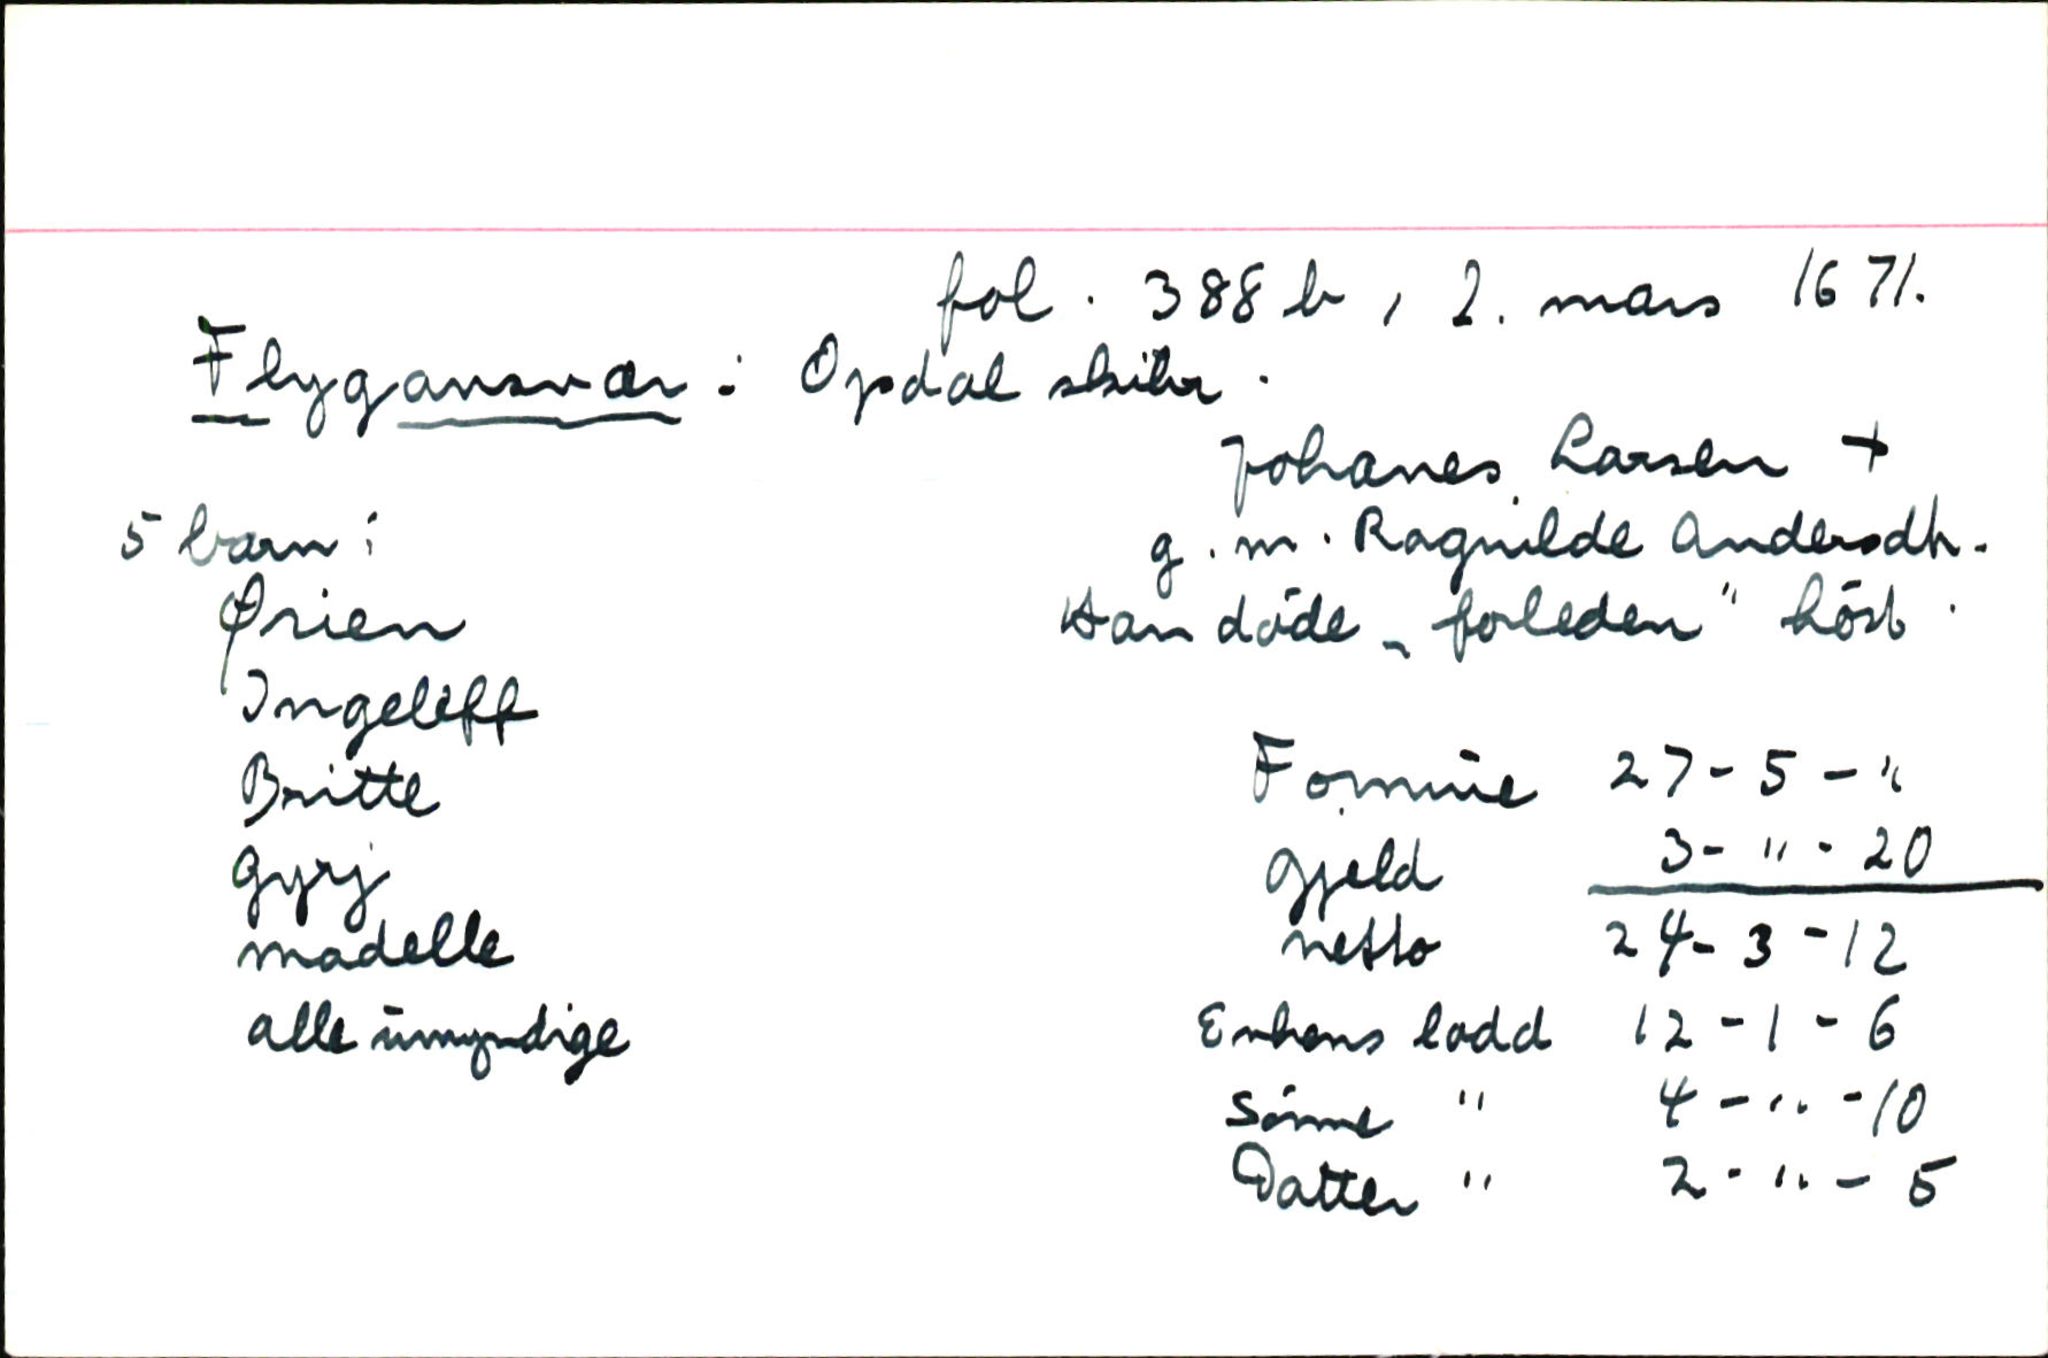 fol. 388 b, 2. mars 1671.
Flygansvær: Opdal skibr.
Johanes Larsen +
5 barn:
g.m. Ragnilde Andersdtr.
Han døde „forleden" høst.
Ørien
Ingeleff
Britte
Gyrj
Madelle
alle umyndige
Formue 27 - 5 - "
Gjeld 3 - " - 20
netto 24 - 3 - 12
Enkens lodd 12 - 1 - 6
Sønne " 4 - " - 10
Datter " 2 - " - 5